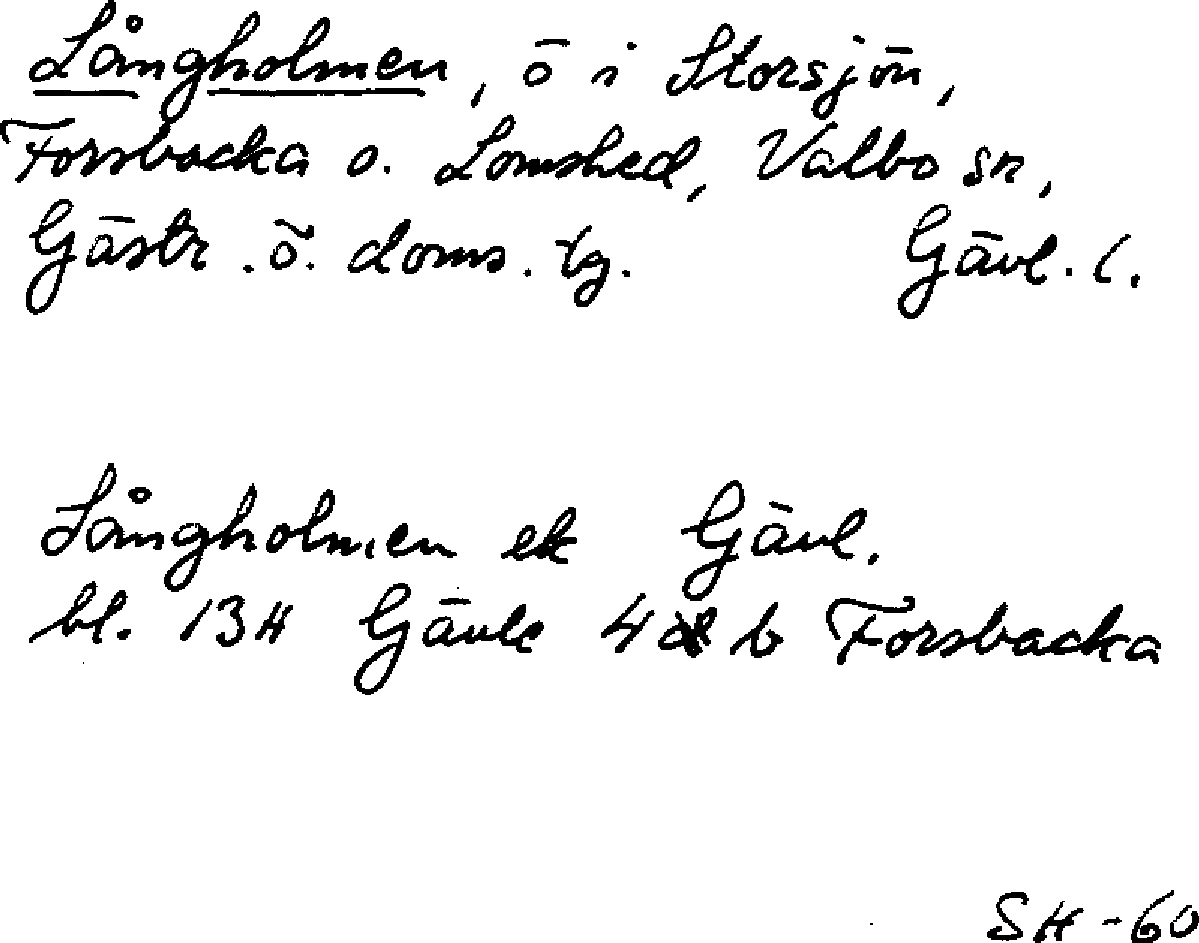 Långholmen, ö i Storsjön,
Forsbacka o. Lomshed, Valbo sn,
Gästr. ö. doms. tg. Gävl. l.
Långholmen ek Gävl.
bl. 13H Gävle 4d b Forsbacka
SH-60